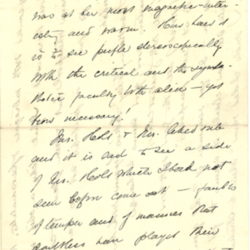 was at her most magnetic - inter-
esting and warm. How hard
is to see people stereoscopically
with the critical and the sympa-
thetic faculty both alive - yet
how necessary!
Mrs. Holt & Mrs.
and it is sad to see a side
of Mrs. Holt which I had not
seen before come out - faults
of temper and of manners that
doubtless have played their